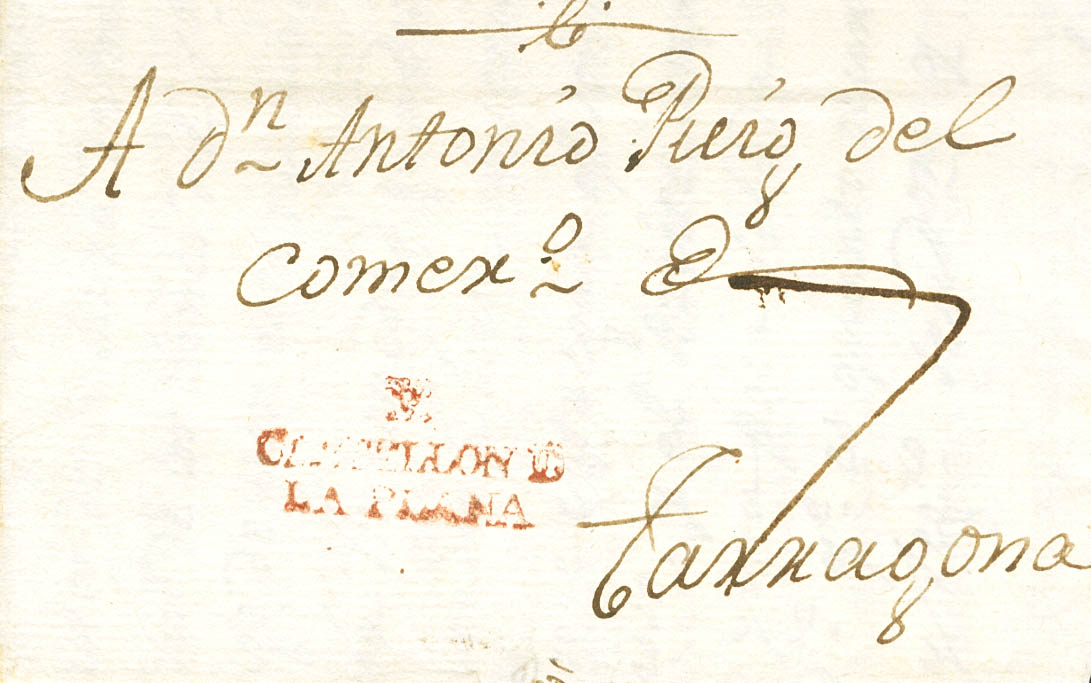 A dn Antonio Puig del
comerº
CASTELLON DE
LA PLANA
Tarragona